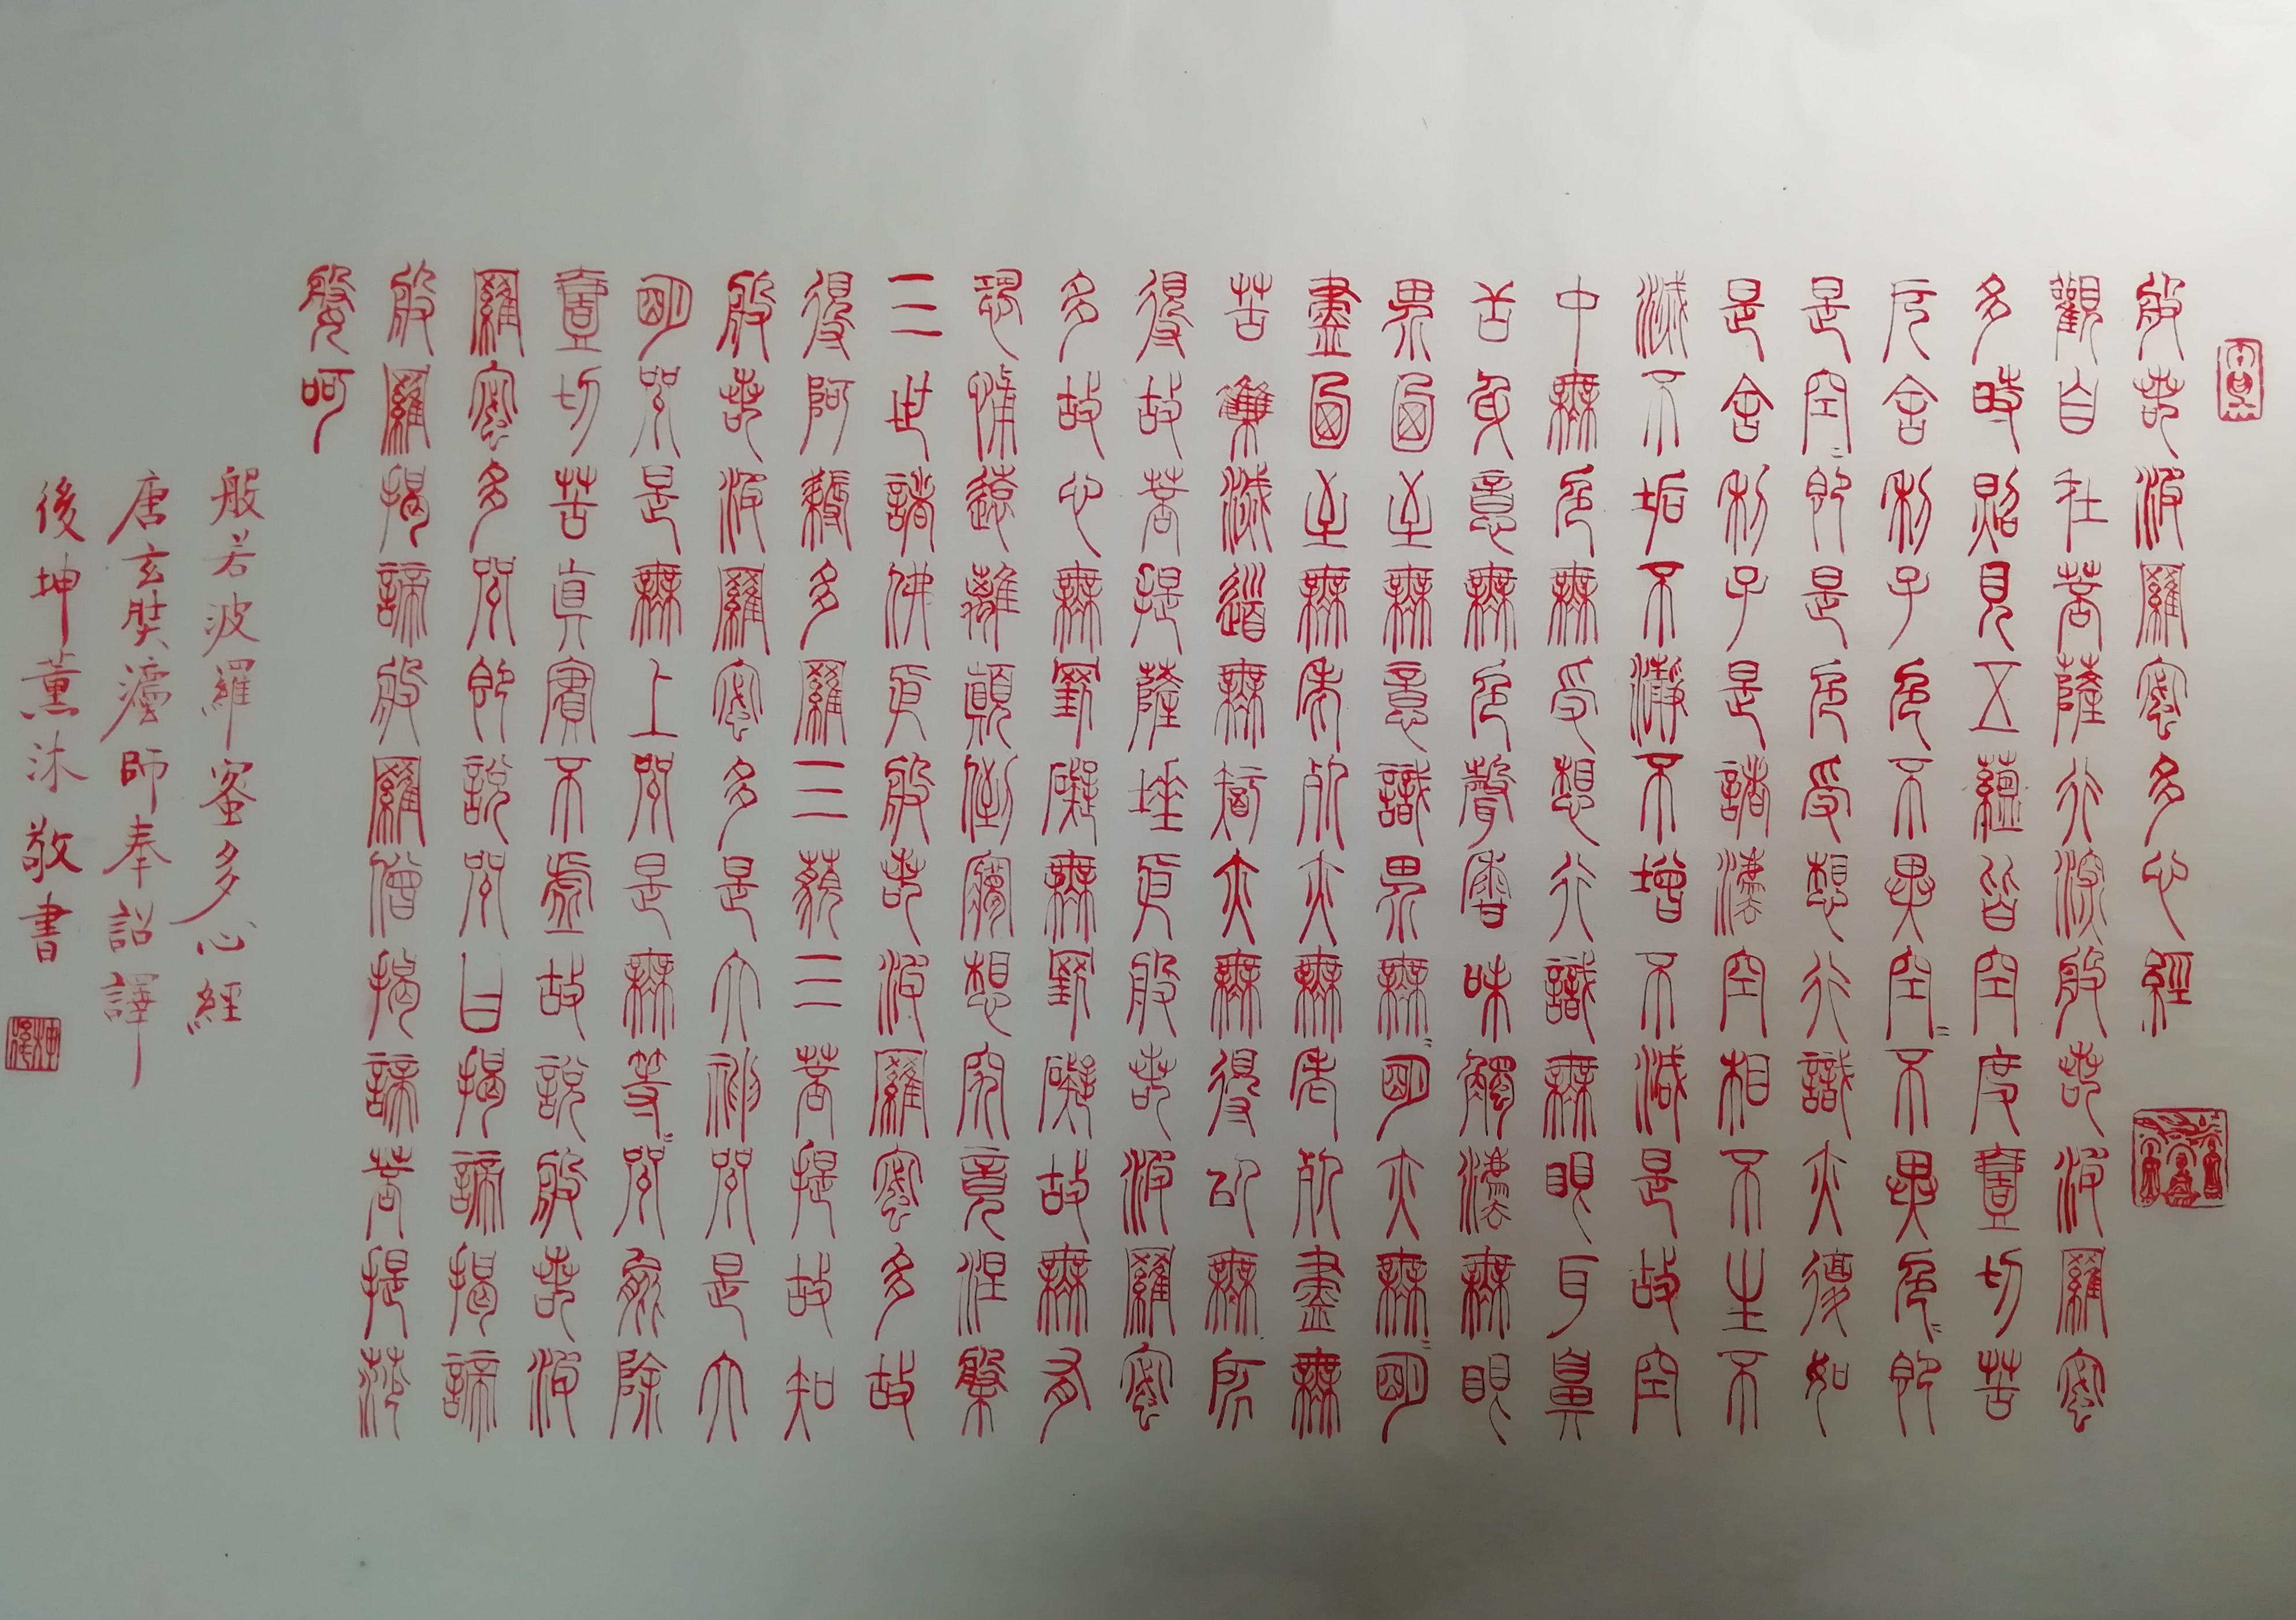 般若波羅蜜多心經
觀自在菩薩行深般若波羅蜜
多時照見五蘊皆空度壹切苦
厄舍利子色不異空=不異色=即
是空=即是色受想行識亦復如
是舍利子是諸法空相不生不
滅不垢不淨不增不減是故空
中無色無受想行識無眼耳鼻
舌身意無色聲香味觸法無眼
界乃至無意識界無=明亦無=明
盡乃至無老死亦無老死盡無
苦集滅道無智亦無得以無所
得故菩提薩埵依般若波羅蜜
多故心無罣礙無罣礙故無有
恐怖遠離顛倒夢想究竟涅槃
三世諸佛依般若波羅蜜多故
得阿耨多羅三藐三菩提故知
般若波羅蜜多是大神咒是大
明咒是無上咒是無等=咒能除
壹切苦真實不虛故說般若波
羅蜜多咒即說咒曰揭諦揭諦
般羅揭諦般羅僧揭諦菩提莎
媻呵
般若波羅蜜多心經
唐玄奘灋師奉詔譯
後坤薰沐敬書
後坤